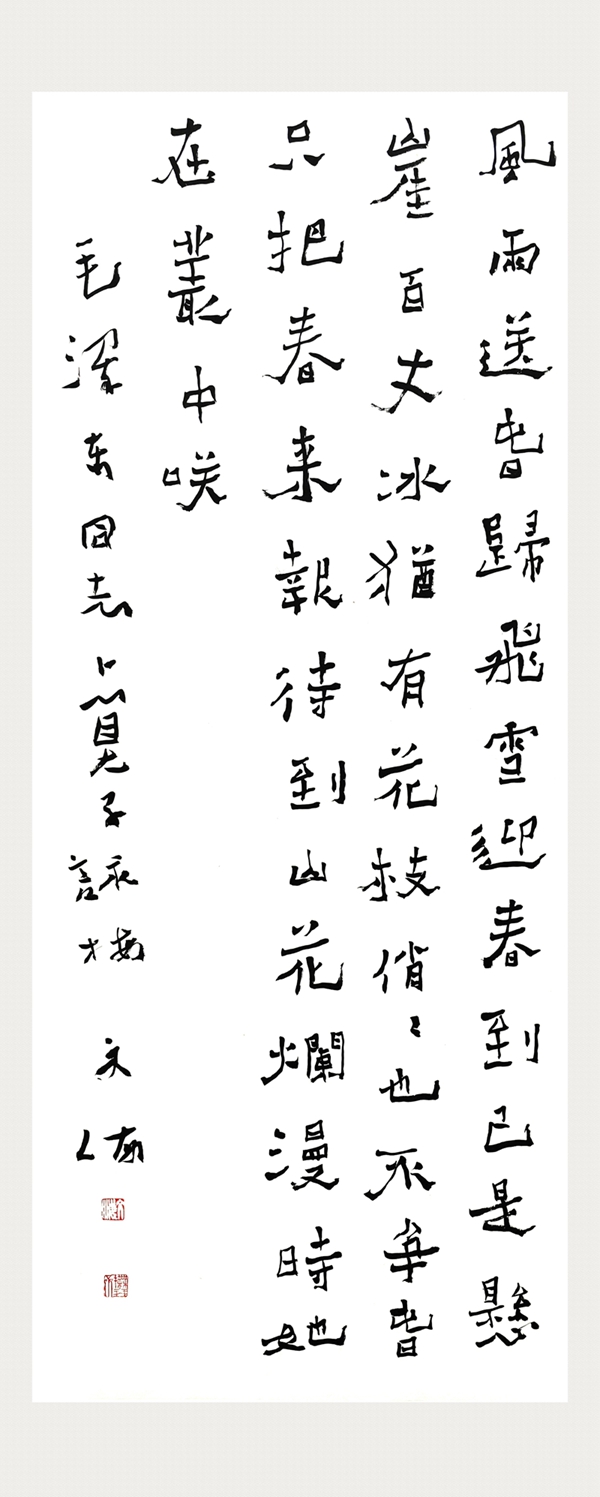 風雨送旾歸飛雪迎春到已是懸
崖百丈冰猶有花枝俏〻也不爭旾
只把春来報待到山花爛漫時她
在叢中咲
毛澤东同志卜算子詠梅 文